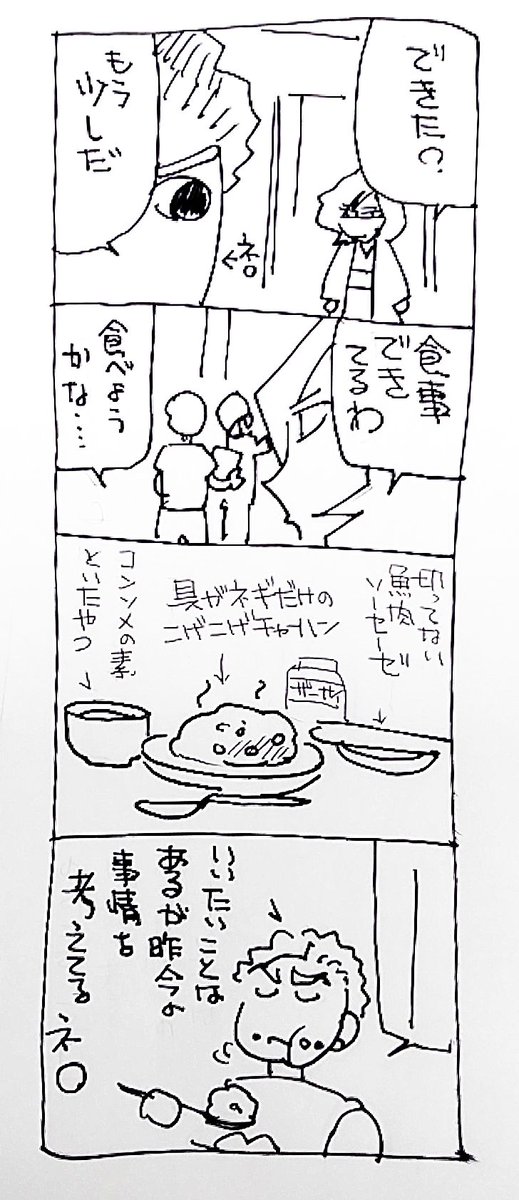 できた？
もう
少しだ
ネロ
食事
でき
てるわ
食べよう
かな…
切ってない
魚肉
ソーセージ
ザーサイ
具がネギだけの
こげこげチャーハン
コンソメの素
といたやつ
いいたいことは
あるが昨今の
事情を
考えてる
ネロ